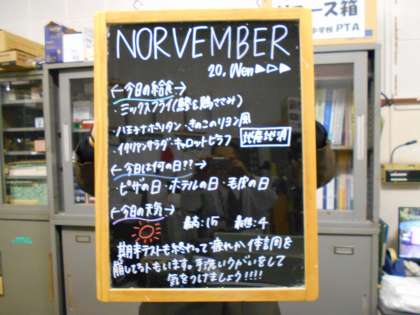 リユース箱
中学校 PTA
NORVEMBER
20, Wen ▶▷▶
←今日の給食→
・ミックスフライ(鯵&鶏ささみ)
・八王子ナポリタン・きのこのリヨン風
・イタリアンサラダ・キャロットピラフ 地産地消
←今日は何の日??→
・ピザの日・ホテルの日・毛皮の日
←今日の天気→
最高:15 最低:4
期末テストも終わって疲れか体調を
崩してる人もいます。手洗いうがいをして
気をつけましょう!!!!